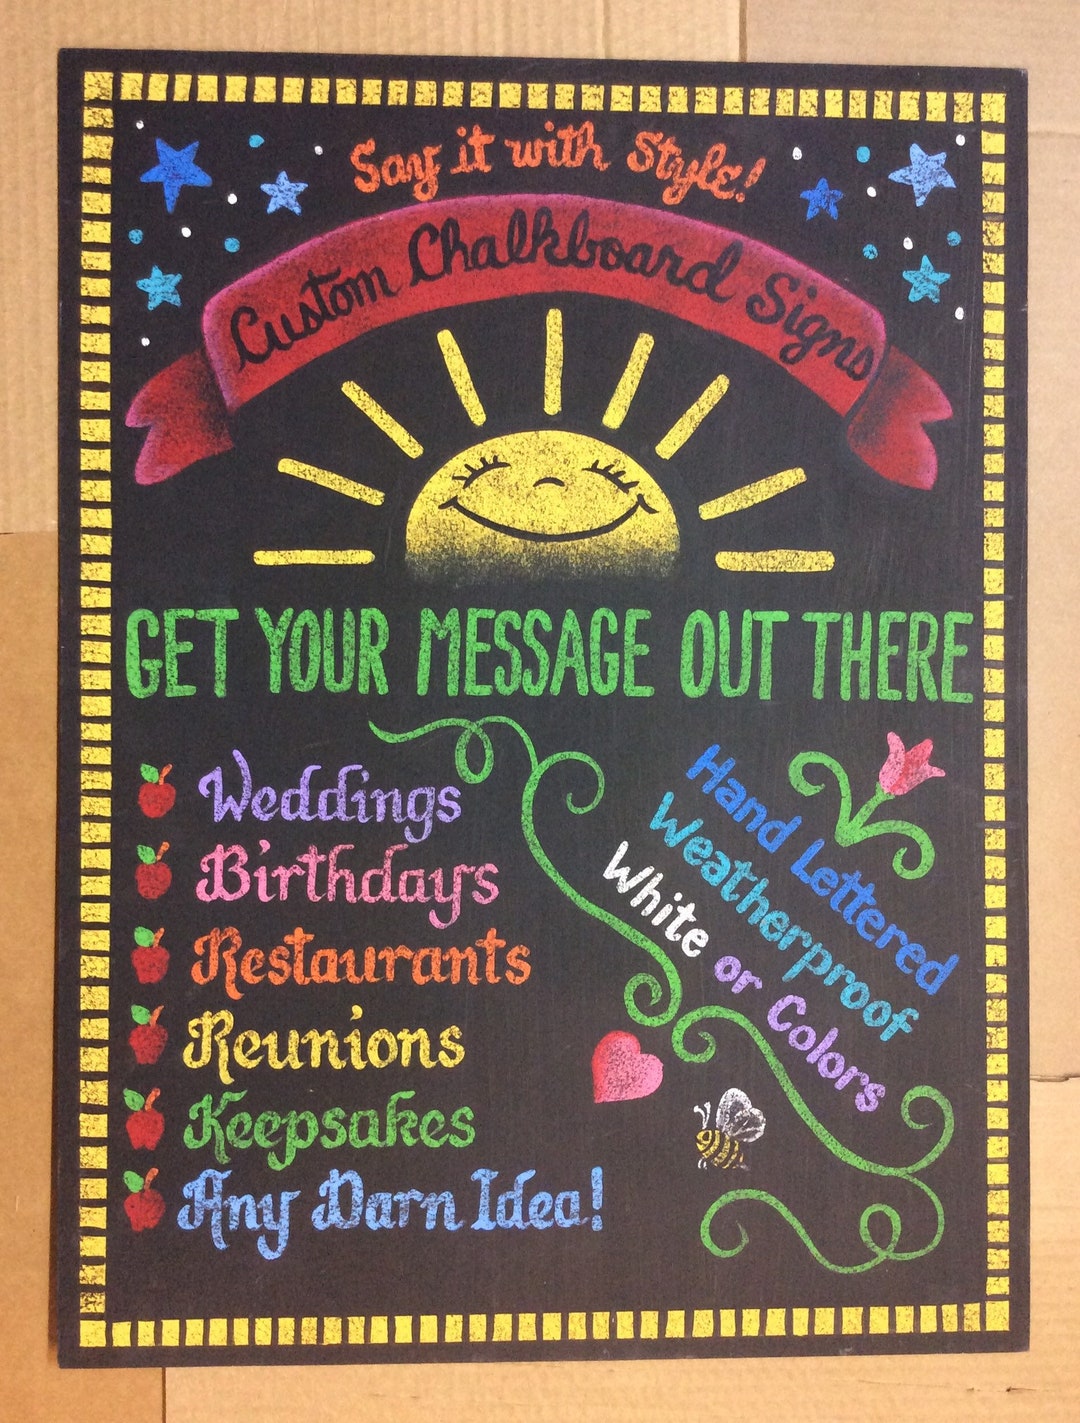 Say it with Style!
Custom Chalkboard Signs
GET YOUR MESSAGE OUT THERE
Weddings
Birthdays
Restaurants
Reunions
Keepsakes
Any Darn Idea!
Hand Lettered
Weatherproof
White or Colors